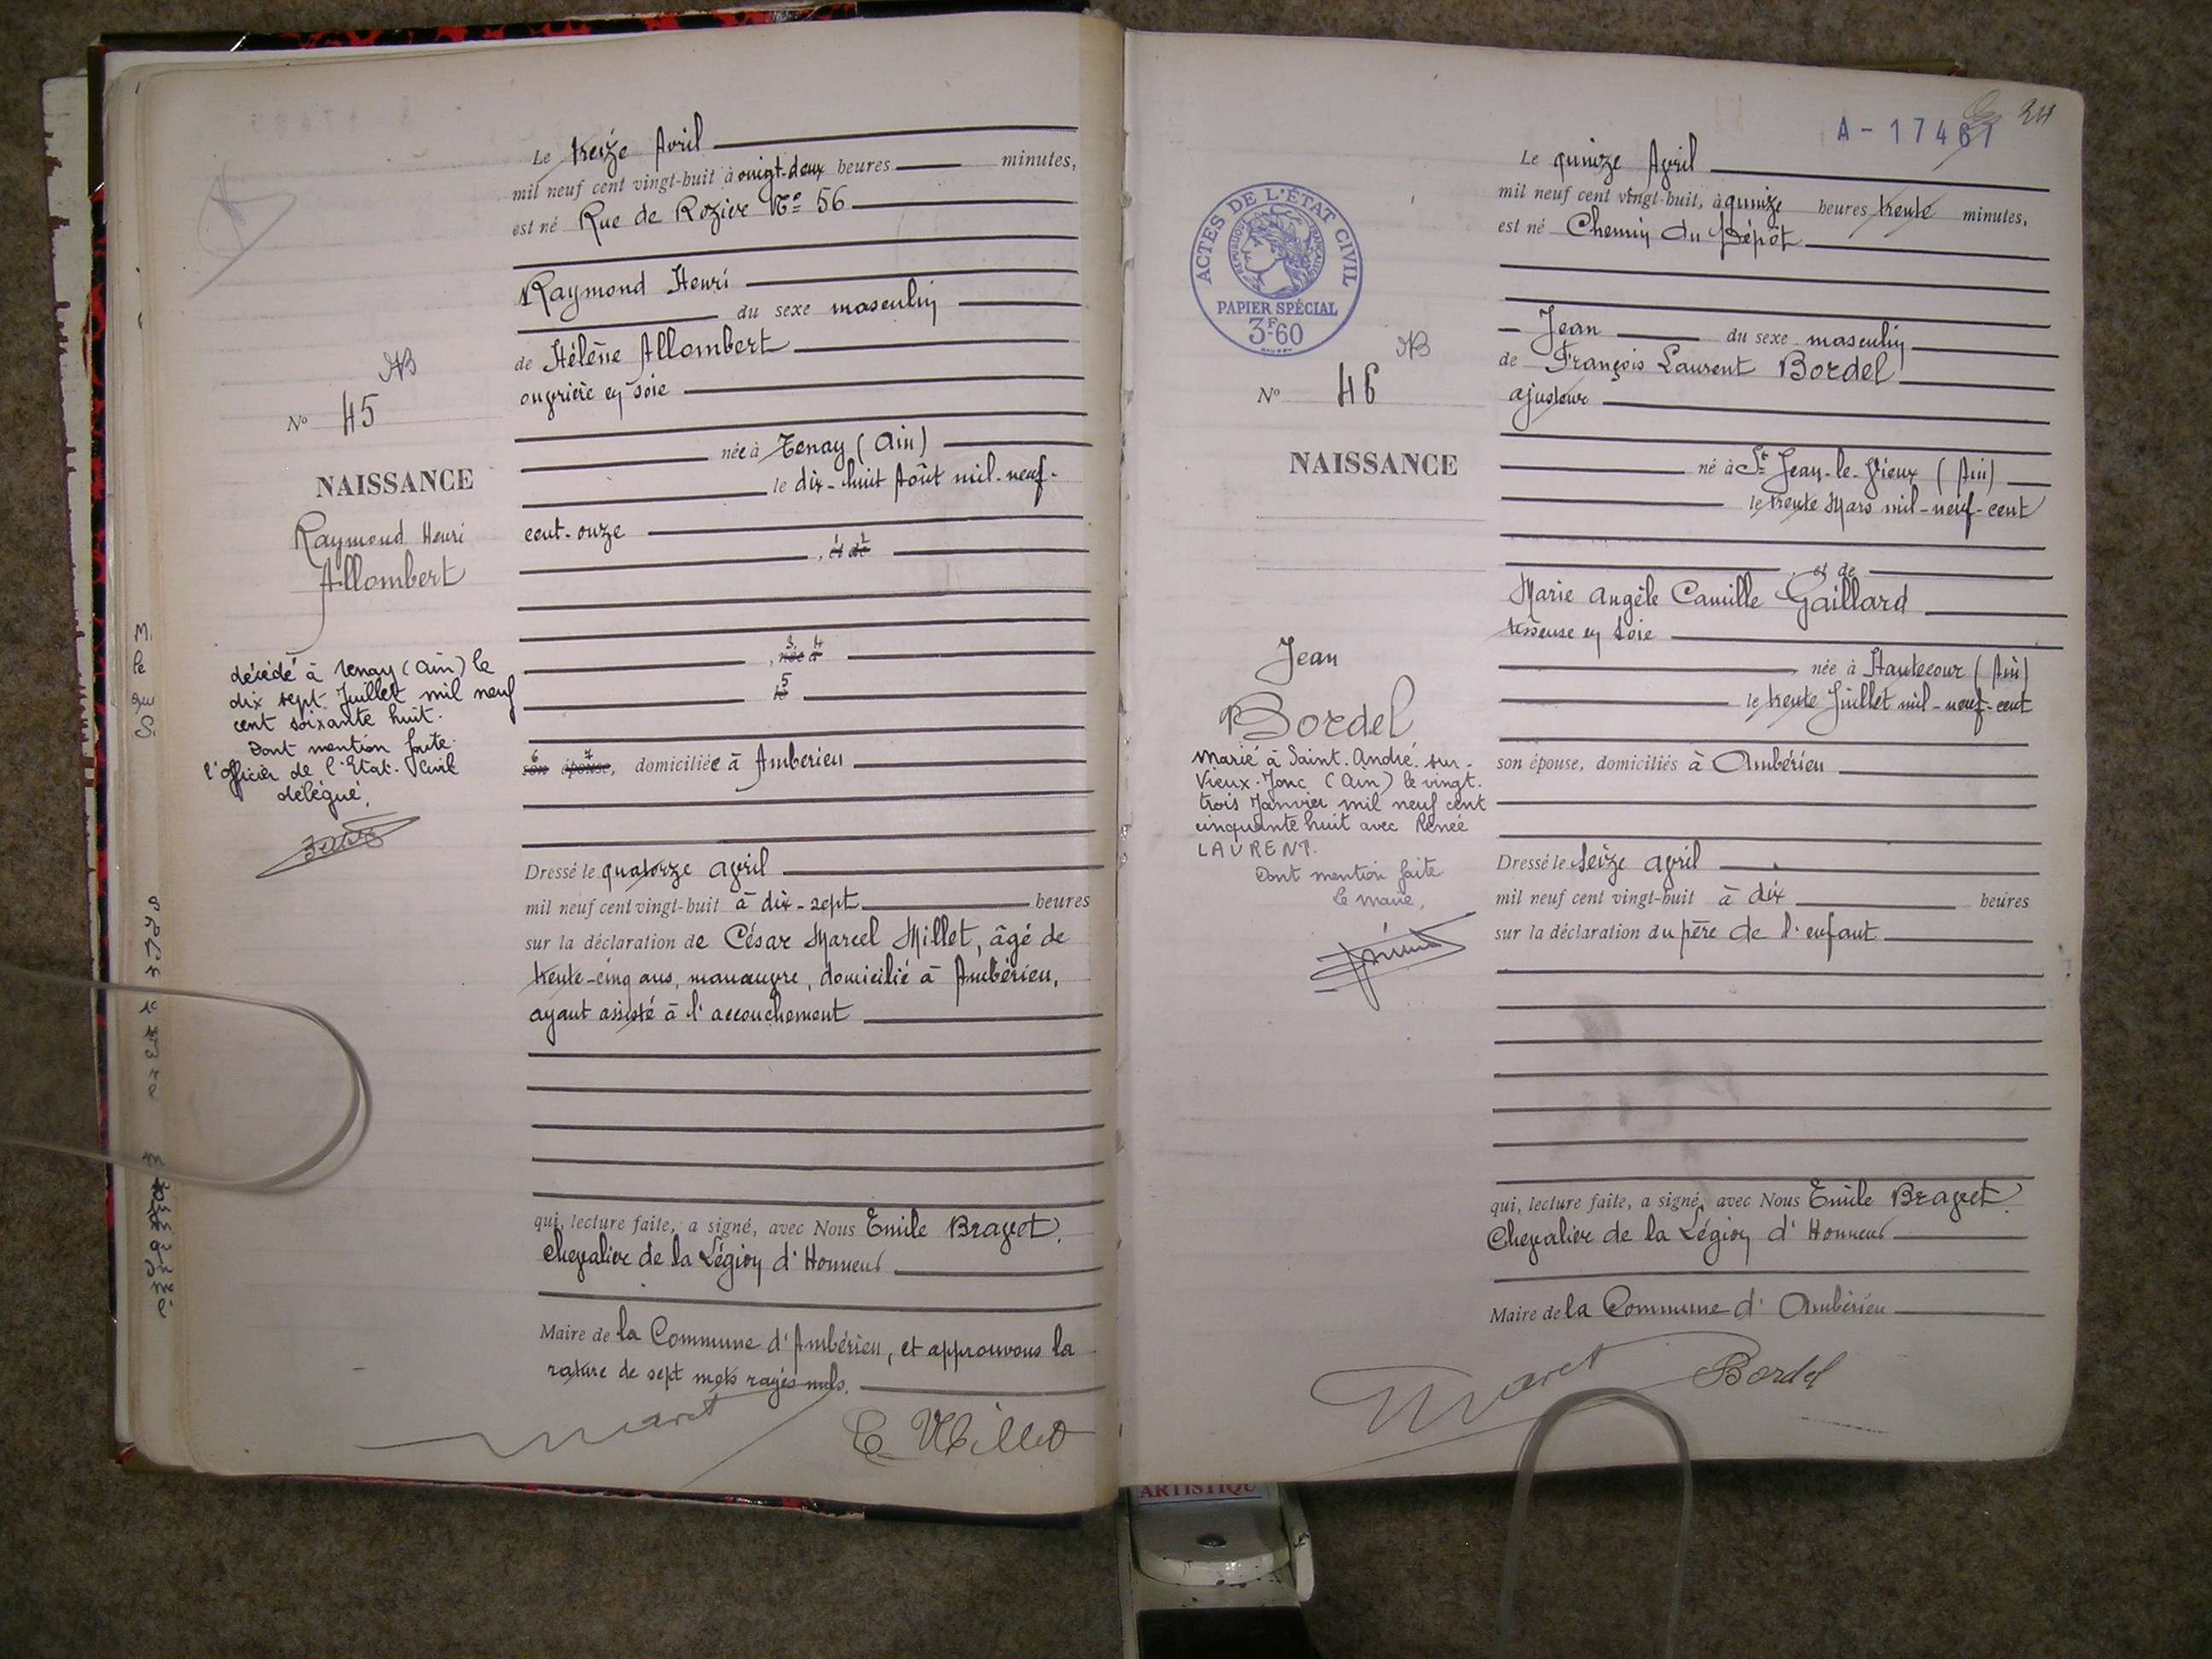 Le treize Avril
mil neuf cent vingt-huit à vingt-deux heures minutes,
est né Rue de Rozier N° 56
Raymond Henri
du sexe masculin
de Hélène Allombert
ouvrière en soie
née à Tenay (Ain)
le dix-huit Août mil-neuf-
cent-onze
1 2
, et de
3 4
, née à
5
le
6 7
son épouse, domiciliée à Ambérieu
Dressé le quatorze avril
mil neuf cent vingt-huit à dix-sept heures
sur la déclaration de César Marcel Millet, âgé de
trente-cinq ans, manœuvre, domicilié à Ambérieu,
ayant assisté à l'accouchement
qui, lecture faite, a signé, avec Nous Emile Bravet,
Chevalier de la Légion d'Honneur
Maire de la Commune d'Ambérieu, et approuvons la
rature de sept mots rayés nuls.
E Millet
N° 45
NAISSANCE
Raymond Henri
Allombert
décédé à Tenay (Ain) le
dix sept Juillet mil neuf
cent soixante huit.
Dont mention faite.
l'officier de l'Etat-Civil
délégué,
A-17461
24
Le quinze Avril
mil neuf cent vingt-huit, à quinze heures trente minutes,
est né Chemin du Dépôt
Jean du sexe masculin
de François Laurent Bordel
ajusteur
né à St Jean-le-Vieux (Ain)
le trente Mars mil-neuf-cent
, et de
Marie Angèle Camille Gaillard
tisseuse en soie
née à Hautecour (Ain)
le trente Juillet mil-neuf-cent
son épouse, domiciliés à Ambérieu
Dressé le seize avril
mil neuf cent vingt-huit à dix heures
sur la déclaration du père de l'enfant
qui, lecture faite, a signé, avec Nous Emile Bravet,
Chevalier de la Légion d'Honneur
Maire de la Commune d'Ambérieu
Bordel
ACTES DE L'ÉTAT CIVIL
RÉPUBLIQUE FRANÇAISE
PAPIER SPÉCIAL
3F-60
N° 46
NAISSANCE
Jean
Bordel
marié à Saint-André-sur-
Vieux-Jonc (Ain) le vingt-
trois Janvier mil neuf cent
cinquante huit avec Renée
LAURENT.
Dont mention faite
Le maire,
ARTISTIQU